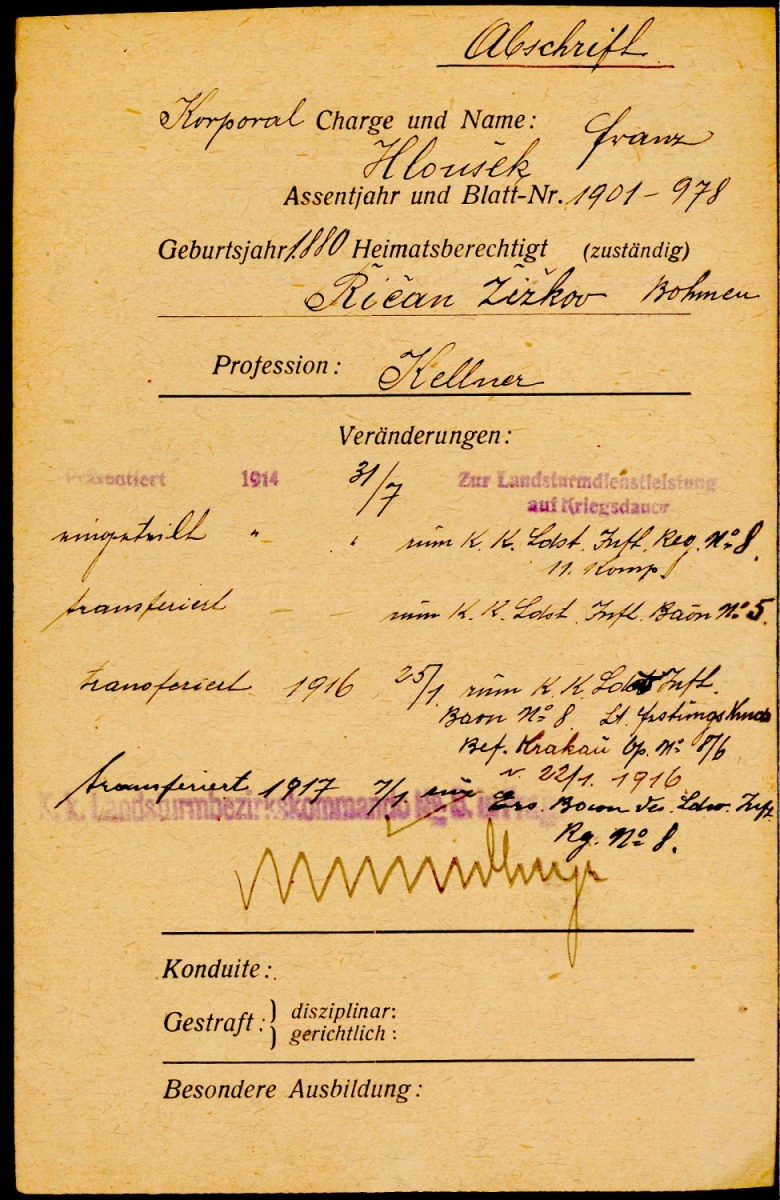 Abschrift
Korporal Charge und Name: Franz
Hloušek
Assentjahr und Blatt-Nr. 1901 - 978
Geburtsjahr 1880 Heimatsberechtigt (zuständig)
Řičan Žižkov Bohmen
Profession: Kellner
Veränderungen:
Präsentiert 1914 31/7 Zur Landsturmdienstleistung
auf Kriegsdauer
eingeteilt " " zum K. K. Ldst. Inft. Reg. No 8.
11. Komp.
transferiert - - zum K. K. Ldst. Inft. Baon No 5.
transferiert 1916 25/1 zum K. K. Ldst Inft.
Baon No 8. Lt. Festungs
Bef. Krakau Op. No 87/6
v. 22/1. 1916
transferiert 1917 7/1. zum Ers. Baon des Ldw. Inft.
K. k. Landsturmbezirkskommando
Rg. No 8.
Konduite:
Gestraft: disziplinar:
gerichtlich:
Besondere Ausbildung: